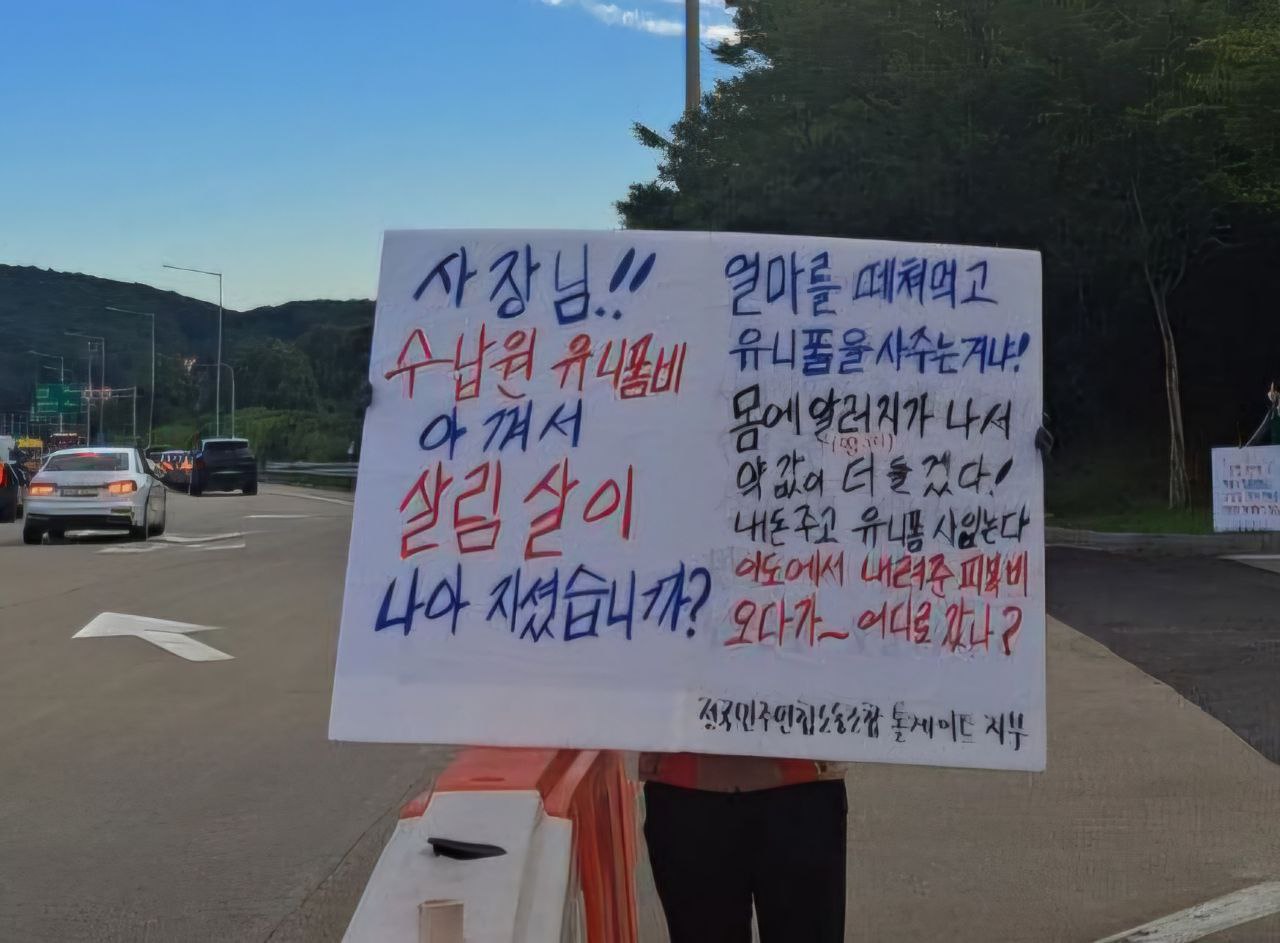 사장님!!
수납원 유니폼비
아껴서
살림살이
나아 지셨습니까?
얼마를 떼쳐먹고
유니폼을 사주는거냐!
몸에 알러지가 나서
약값이 더 들겠다!
내돈주고 유니폼 사입는다
이도에서 내려준 피복비
오다가~ 어디로 갔나?
전국민주연합노동조합 톨게이트 지부